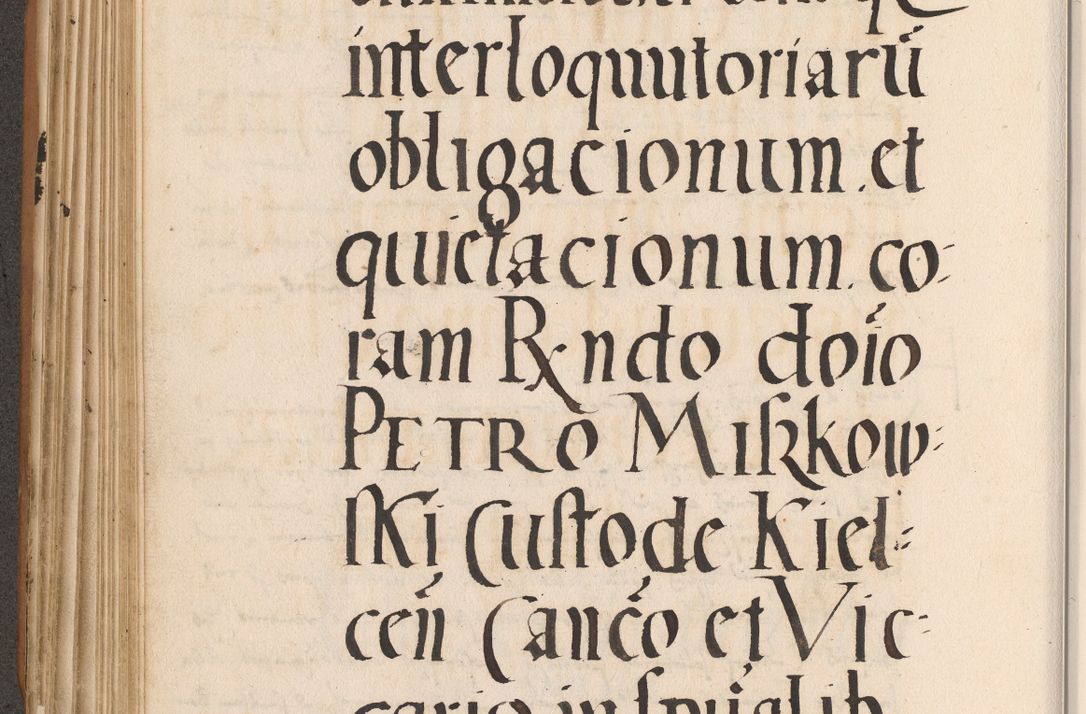 interloquutoriarū
obligacionum. et
quictacionum. co:
ram Rndo doīo
PETRO Miſzkow:
ſKi Cuſtode Kiel:
ceń Canc̄o et Vic:
cario in ſpūalib